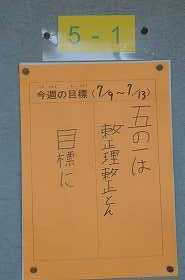 5-1
今週の目標(7/9~7/13)
五の一は
整正理整正とん
目標に